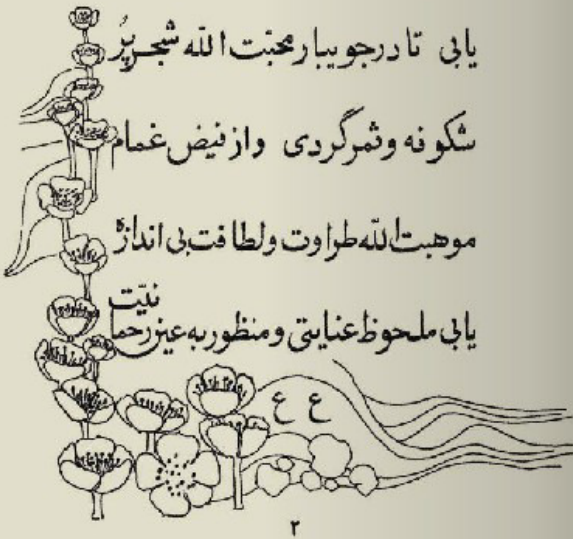 یابی تا در جویبار محبّت الله شجر پرُ
شکوفه و ثمر گردی و از فیض غمام
موهبت الله طراوت و لطافت بی اندازهٔ
یابی ملحوظ عنایتی و منظور به عین رحمانیّت
ع ع
۲